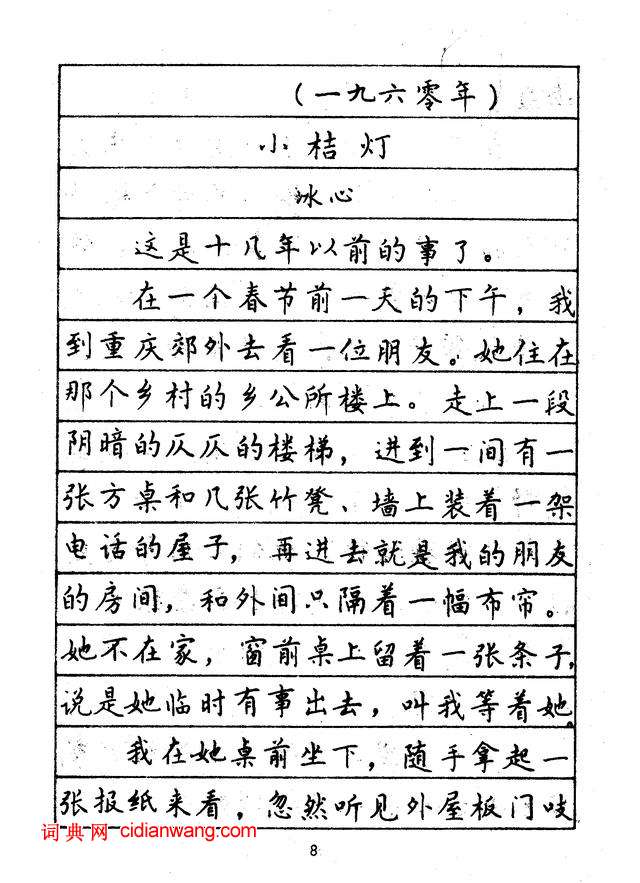 (一九六零年)
小桔灯
冰心
这是十几年以前的事了。
在一个春节前一天的下午，我
到重庆郊外去看一位朋友。她住在
那个乡村的乡公所楼上。走上一段
阴暗的仄仄的楼梯，进到一间有一
张方桌和几张竹凳、墙上装着一架
电话的屋子，再进去就是我的朋友
的房间，和外间只隔着一幅布帘。
她不在家，窗前桌上留着一张条子，
说是她临时有事出去，叫我等着她。
我在她桌前坐下，随手拿起一
张报纸来看，忽然听见外屋板门吱
词典网 cidianwang.com
8